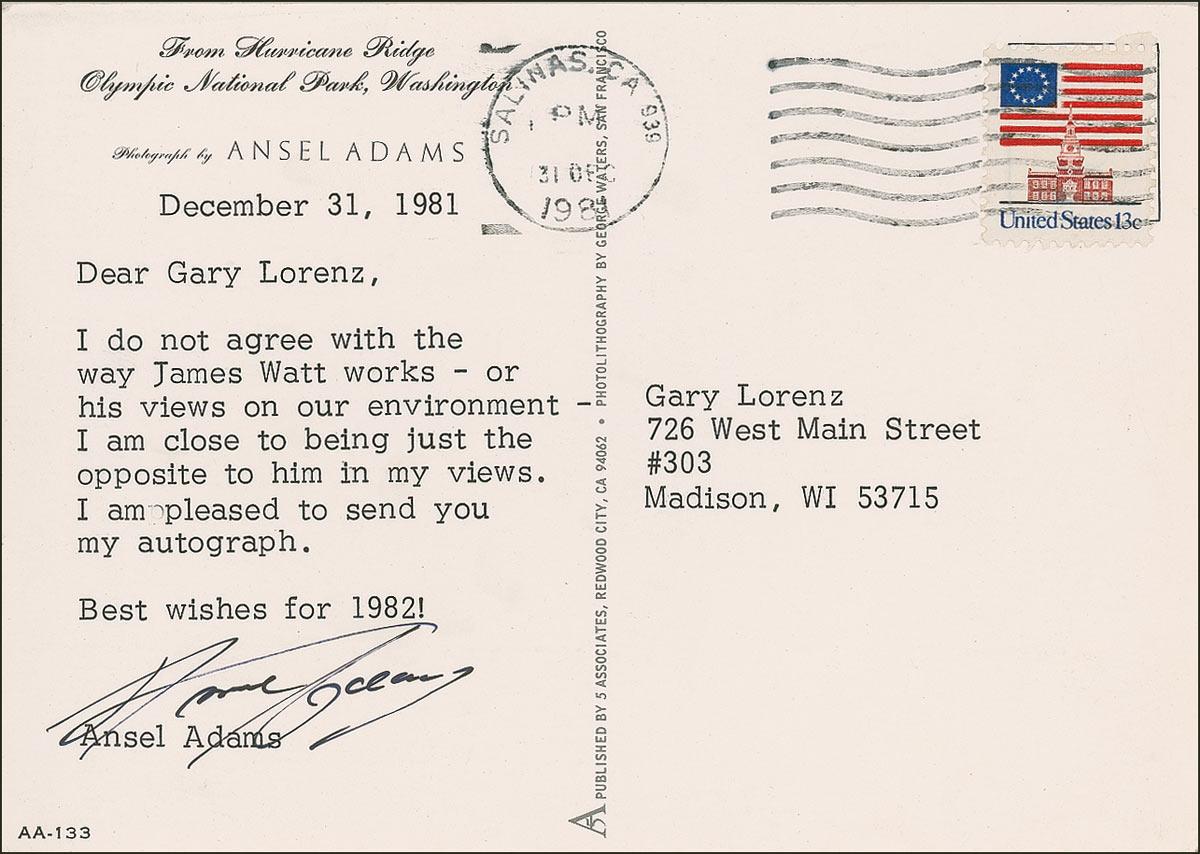 From Hurricane Ridge
Olympic National Park, Washington
Photograph by ANSEL ADAMS
December 31, 1981
Dear Gary Lorenz,
I do not agree with the
way James Watt works - or
his views on our environment -
I am close to being just the
opposite to him in my views.
I am pleased to send you
my autograph.
Best wishes for 1982!
Ansel Adams
Ansel Adams
AA-133
A5 PUBLISHED BY 5 ASSOCIATES, REDWOOD CITY, CA 94062 • PHOTOLITHOGRAPHY BY GEORGE WATERS, SAN FRANCISCO
SALINAS, CA 939
PM
31 DEC
1981
United States 13c
Gary Lorenz
726 West Main Street
#303
Madison, WI 53715